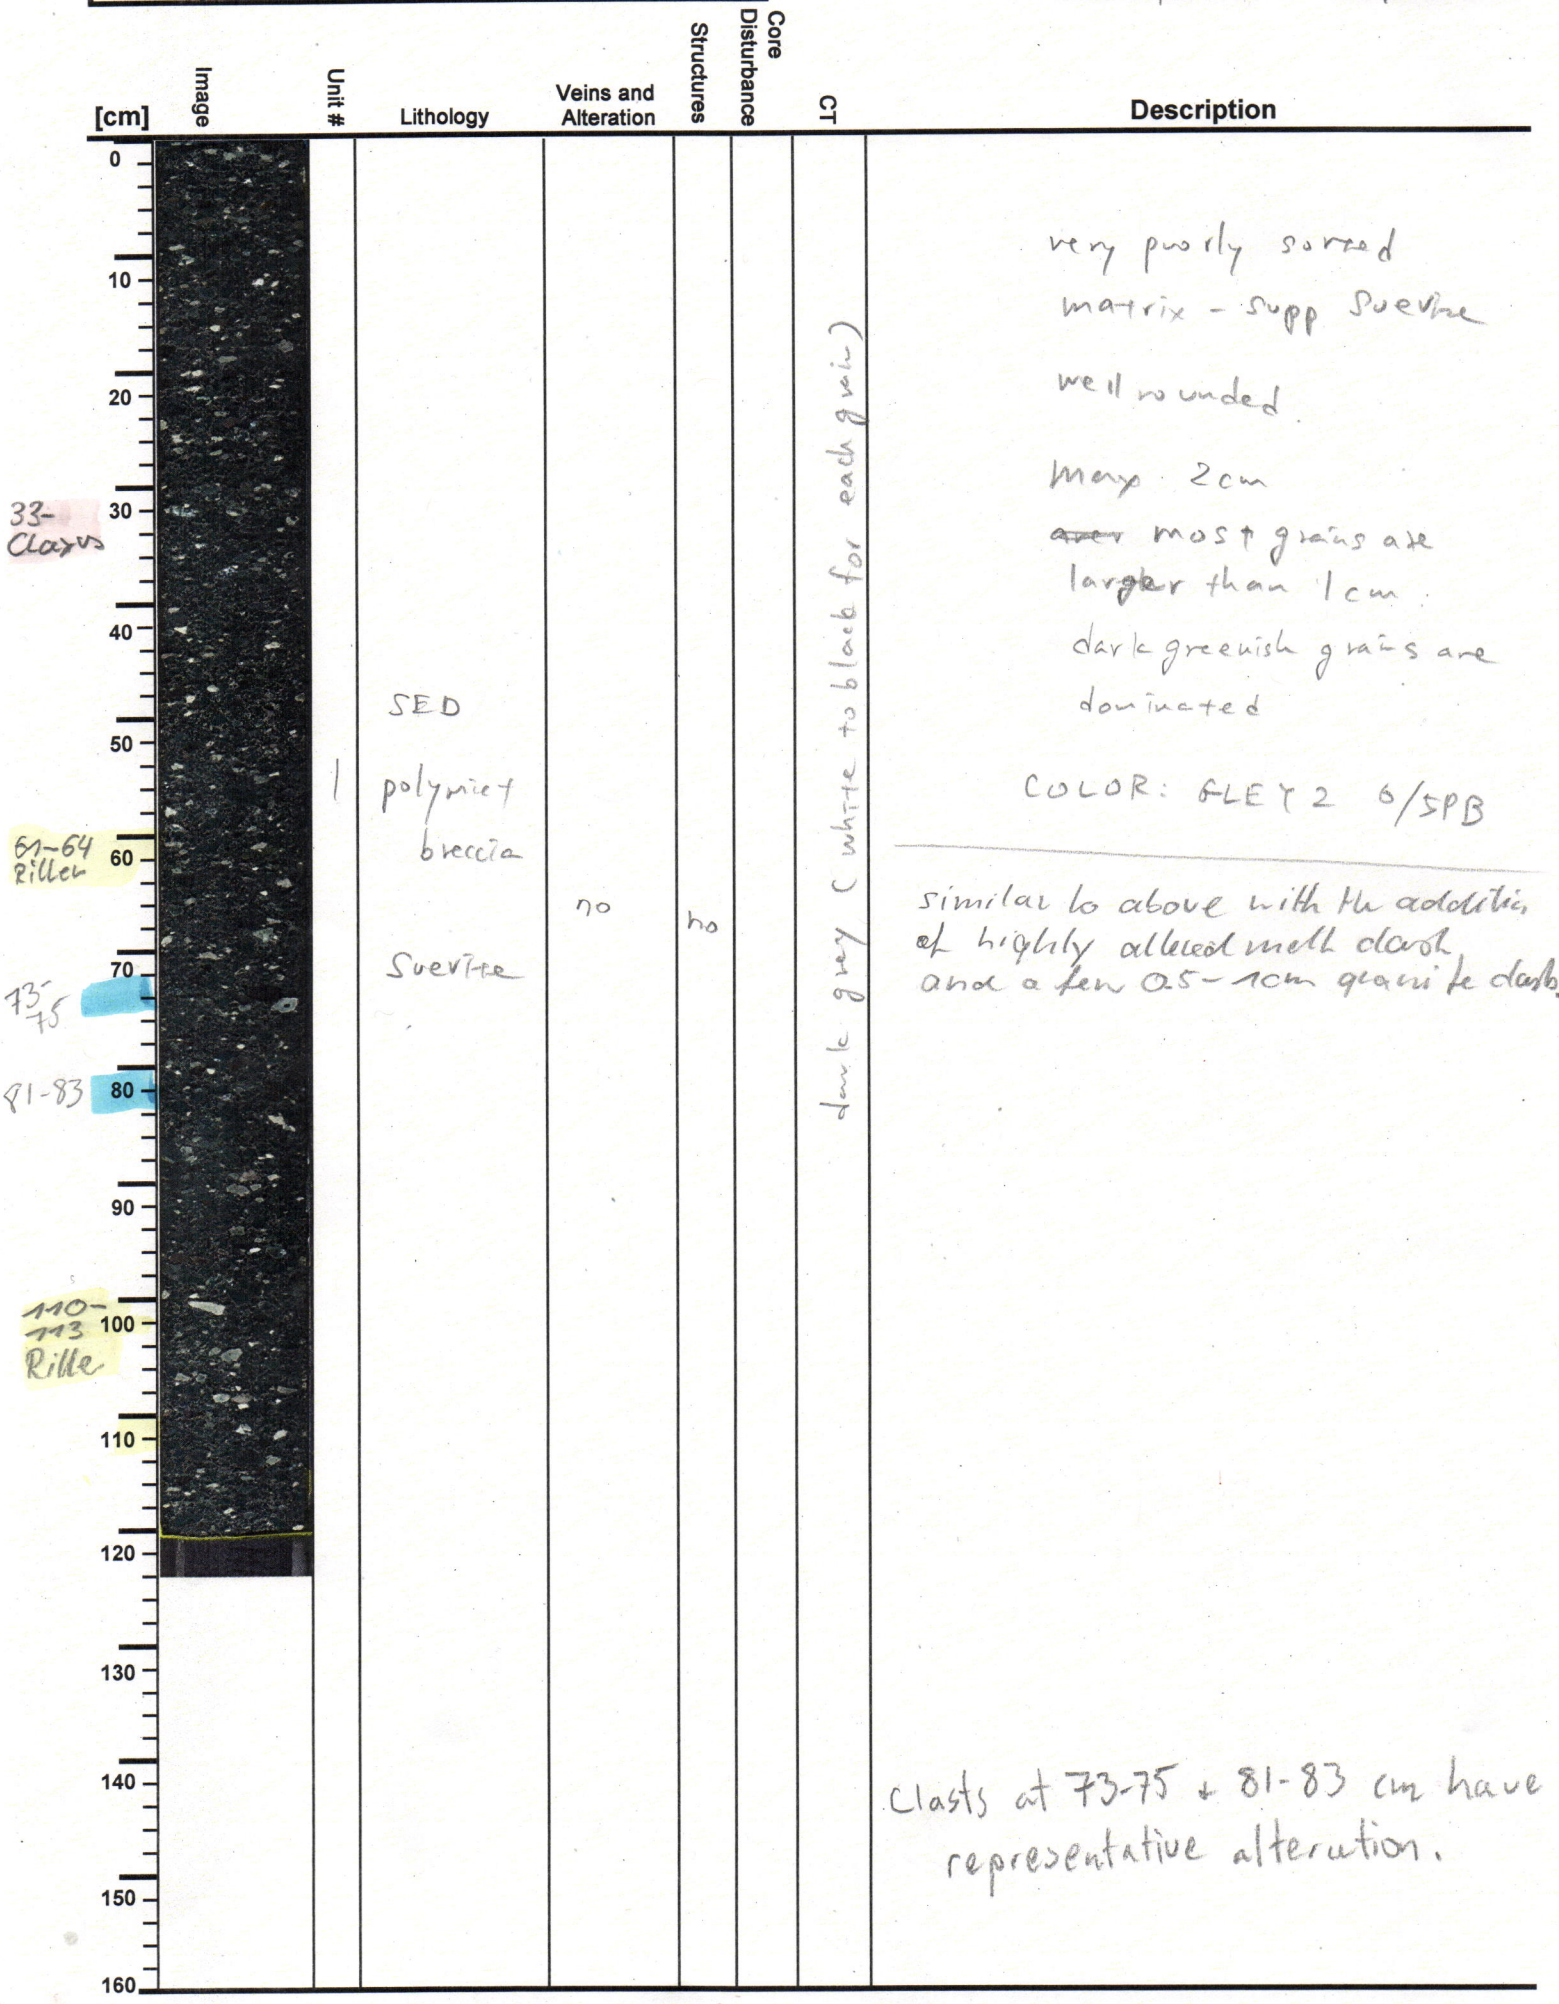 [cm]
Image
Unit #
Lithology
Veins and
Alteration
Structures
Core
Disturbance
CT
Description
0
10
20
30
40
50
60
70
80
90
100
110
120
130
140
150
160
33-
61-64
Riller
73-
75
81-83
110-
113
Rille
1
SED
polymict
breccia
Suevite
no
no
dark grey (white to black for each grain)
very poorly sorted
matrix - supp Suevite
well rounded
max. 2cm
most grains are
larger than 1cm.
dark greenish grains are
dominated
COLOR: GLEY 2 6/5PB
similar to above with the addition
of highly altered melt clasts
and a few 0.5-1cm granite clasts.
Clasts at 73-75 + 81-83 cm have
representative alteration.